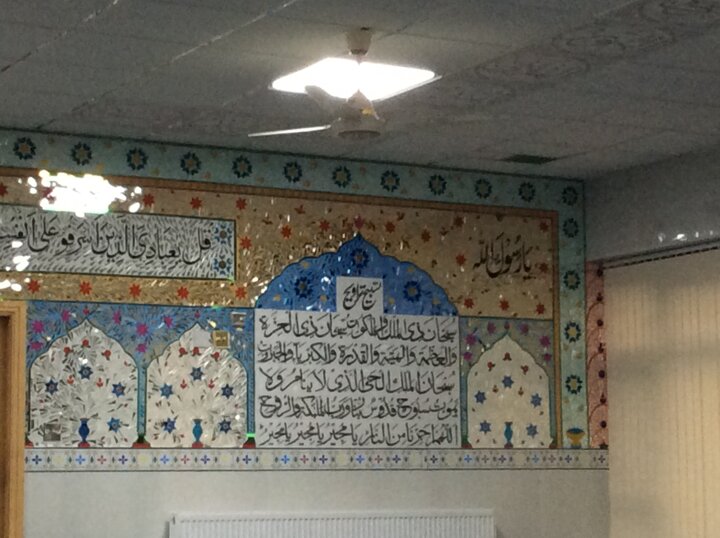 قل يعبادي الذين اسرفو على انفس
يارسول الله
تسبيح تراويح
سبحان ذي الملك والملكوت سبحان ذي العزة
والعظمة والهيبة والقدرة والكبرياء والجبروت
سبحان الملك الحي الذي لا ينام ولا
يموت سبوح قدوس ربنا ورب الملئكة والروح
اللهم اجرنا من النار يا مجير يا مجير يا مجير